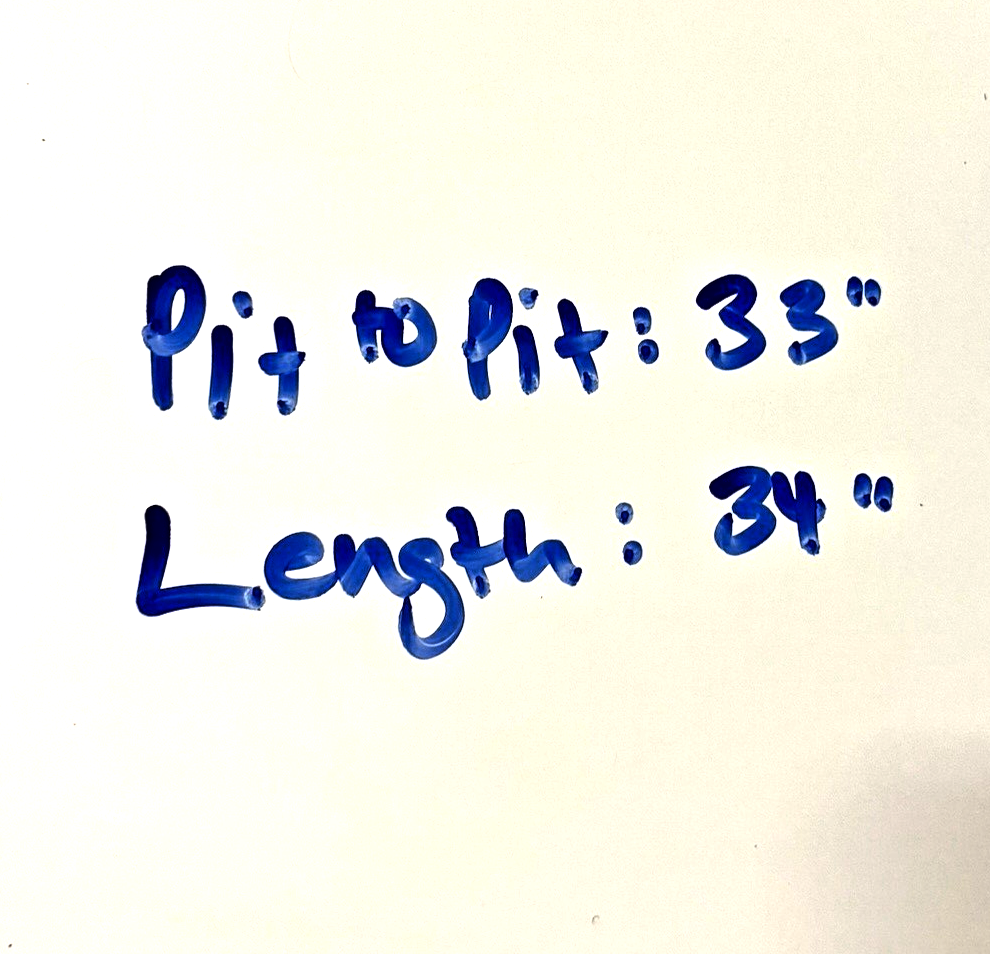 Pit to Pit: 33"
Length: 34"